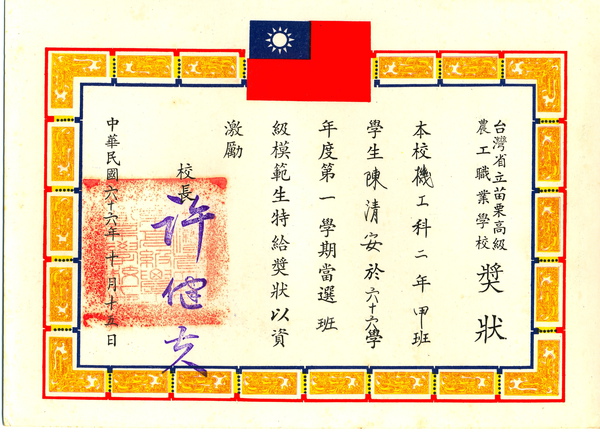 台灣省立苗栗高級
農工職業學校
獎狀
本校機工科二年甲班
學生陳清安於六十六學
年度第一學期當選班
級模範生特給獎狀以資
激勵
校長
中華民國六十六年十一月十五日